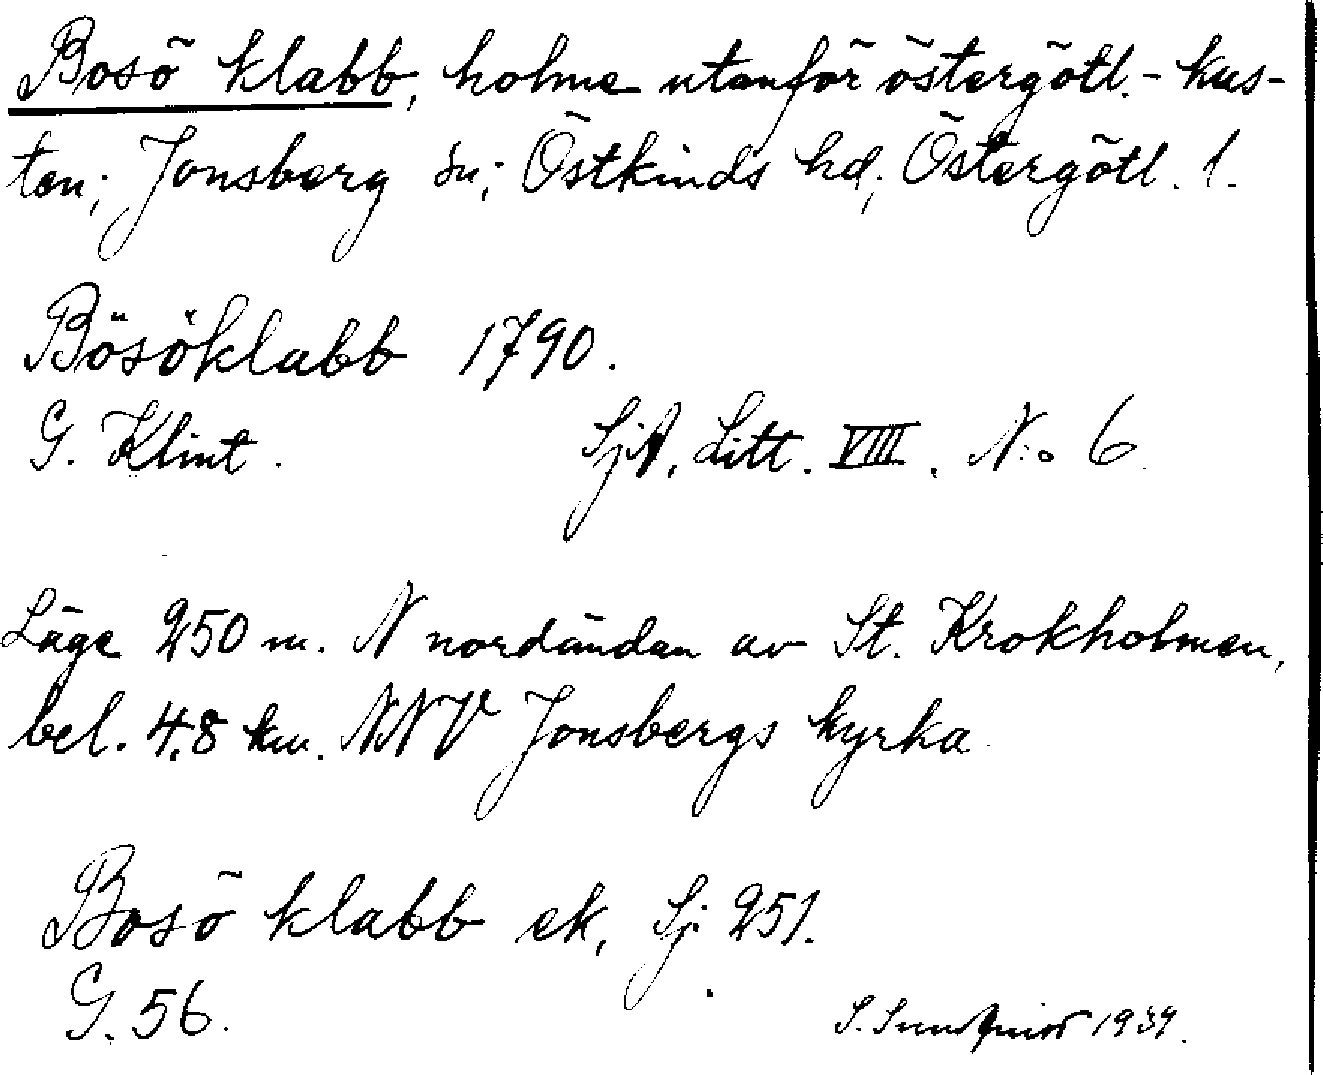 Bosö klabb, holme utanför östergötl.-kus-
ten; Jonsberg sn; Östkinds hd; Östergötl. l.
Bösöklabb 1790.
G. Klint. SjA, Litt. VIII. N:o 6
Läge 250 m. N nordändan av St. Krokholmen,
bel. 4,8 km. NNV Jonsbergs kyrka
Bosö klabb ek, Sj. 251.
G. 56.
S. Sundqvist 1939.